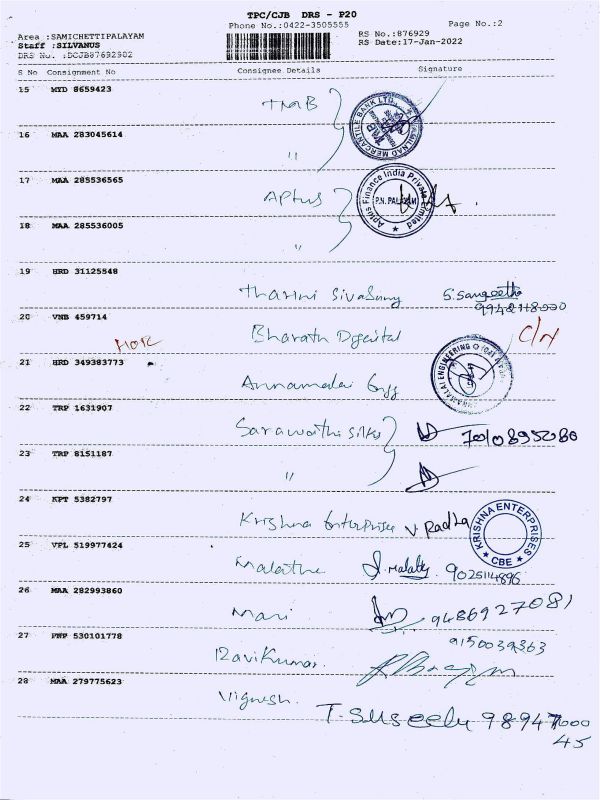 TPC/CJB DRS - P20
Phone No.:0422-3505555
Page No.:2
Area :SAMICHETTIPALAYAM
RS No.:876929
Staff :SILVANUS
RS Date:17-Jan-2022
DRS No. :DCJB87692902
S No Consignment No Consignee Details Signature
15 MYD 8659423
TMB
TAMILNAD MERCANTILE BANK LTD.
16 MAA 283045614
"
17 MAA 285536565
Aptus
Aptus Finance India Private Limited
P.N. PALAYAM
18 MAA 285536005
"
19 HRD 31125548
Tharini Sivasamy S. Sangeetha
20 VNB 459714
Bharath Digital C/N
21 HRD 349383773
Annamalai Engg
ANNAMALAI ENGINEERING
22 TRP 1631907
Saraswathi silks 7010895080
23 TRP 8151187
"
24 KPT 5382797
Krishna Enterprises V. Radha
KRISHNA ENTERPRISES
CBE
25 VPL 519977424
Malathi 9025114896
26 MAA 282993860
Mari 9486927081
27 PNP 530101778
9150039363
Ravikumar.
28 MAA 279775623
Vignesh.
T. Suseela 98947
45